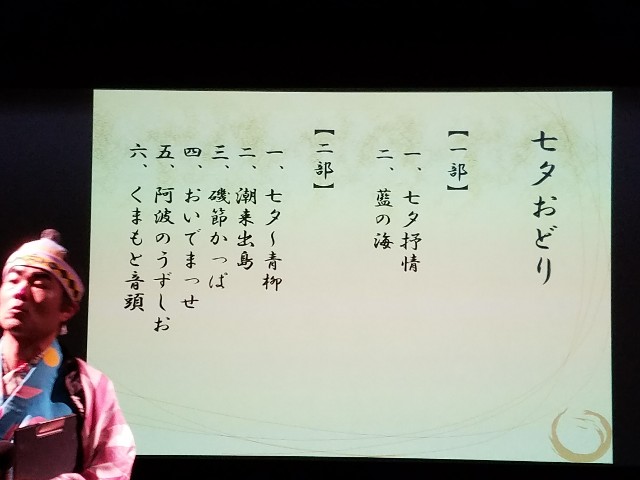 七夕おどり
【一部】
一、七夕抒情
二、藍の海
【二部】
一、七夕〜青柳
二、潮来出島
三、磯節かっぱ
四、おいでまっせ
五、阿波のうずしお
六、くまもと音頭